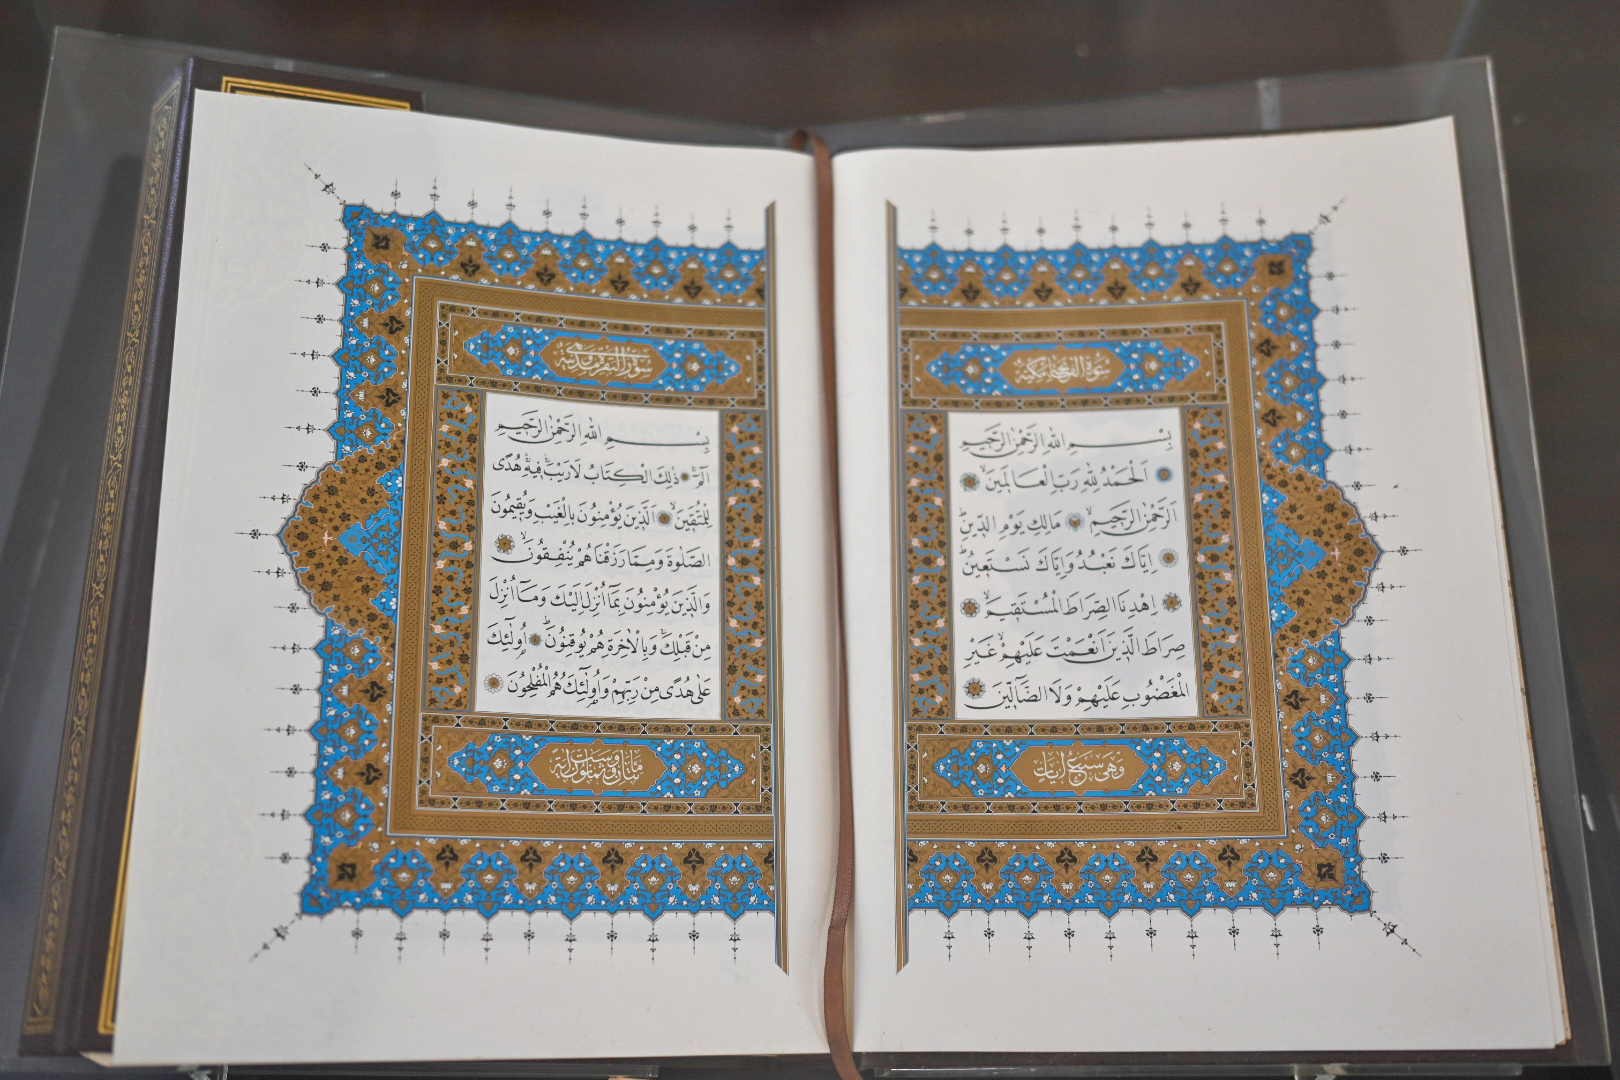 سورة الفاتحة مكية
بِسْمِ اللّٰهِ الرَّحْمٰنِ الرَّحٖيمِ
اَلْحَمْدُ لِلّٰهِ رَبِّ الْعَالَمٖينَۙ
اَلرَّحْمٰنِ الرَّحٖيمِۙ مَالِكِ يَوْمِ الدّٖينِؕ
اِيَّاكَ نَعْبُدُ وَاِيَّاكَ نَسْتَعٖينُؕ
اِهْدِنَا الصِّرَاطَ الْمُسْتَقٖيمَۙ
صِرَاطَ الَّذٖينَ اَنْعَمْتَ عَلَيْهِمْۙ غَيْرِ
الْمَغْضُوبِ عَلَيْهِمْ وَلَا الضَّٓالّٖينَ
وهى سبع ايات
سورة البقرة مدنية
بِسْمِ اللّٰهِ الرَّحْمٰنِ الرَّحٖيمِ
الٓمٓۚ ذٰلِكَ الْكِتَابُ لَا رَيْبَۚۛ فٖيهِۚۛ هُدًى
لِلْمُتَّقٖينَۙ اَلَّذٖينَ يُؤْمِنُونَ بِالْغَيْبِ وَيُقٖيمُونَ
الصَّلٰوةَ وَمِمَّا رَزَقْنَاهُمْ يُنْفِقُونَۙ
وَالَّذٖينَ يُؤْمِنُونَ بِمَٓا اُنْزِلَ اِلَيْكَ وَمَٓا اُنْزِلَ
مِنْ قَبْلِكَۚ وَبِالْاٰخِرَةِ هُمْ يُوقِنُونَؕ اُو۬لٰٓئِكَ
عَلٰى هُدًى مِنْ رَبِّهِمْ وَاُو۬لٰٓئِكَ هُمُ الْمُفْلِحُونَ
مائتان وست وثمانون اية